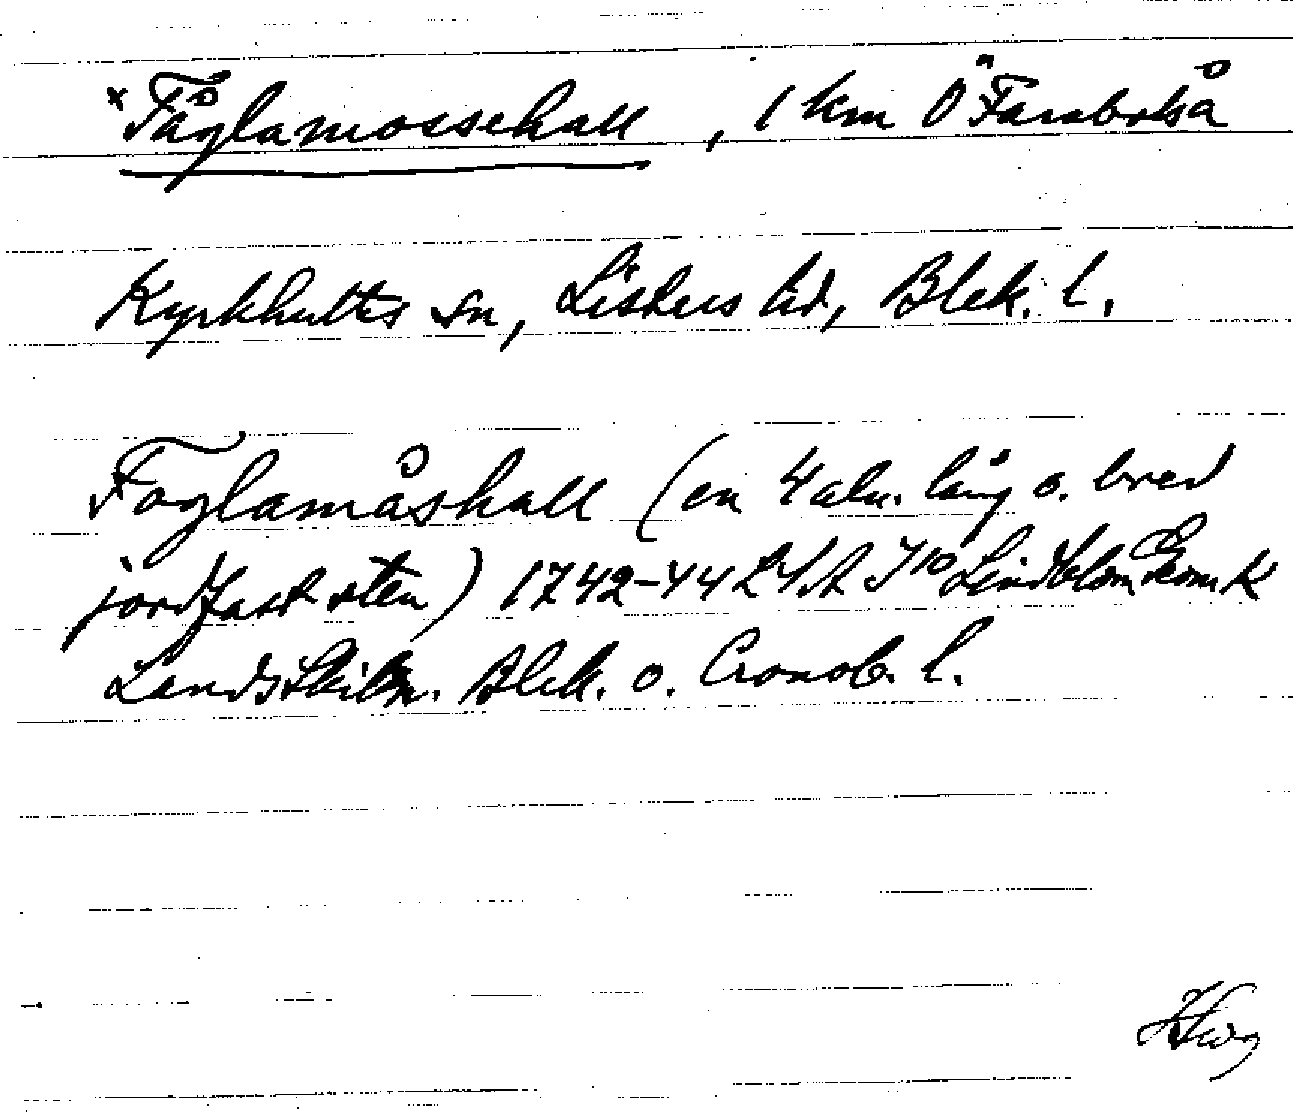 *Fåglamossehall, 1 km Ö Farabolså
Kyrkhults sn, Listers hd, Blek. l.
Foglamåshall (en 4 aln. lång o. bred
jordfast sten) 1742-44 LSA I 10 Lindblom
Landsskiln. Blek. o. Cronob. l.